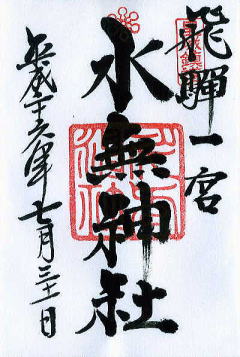 飛騨一宮
水無神社
平成十六年七月三十一日